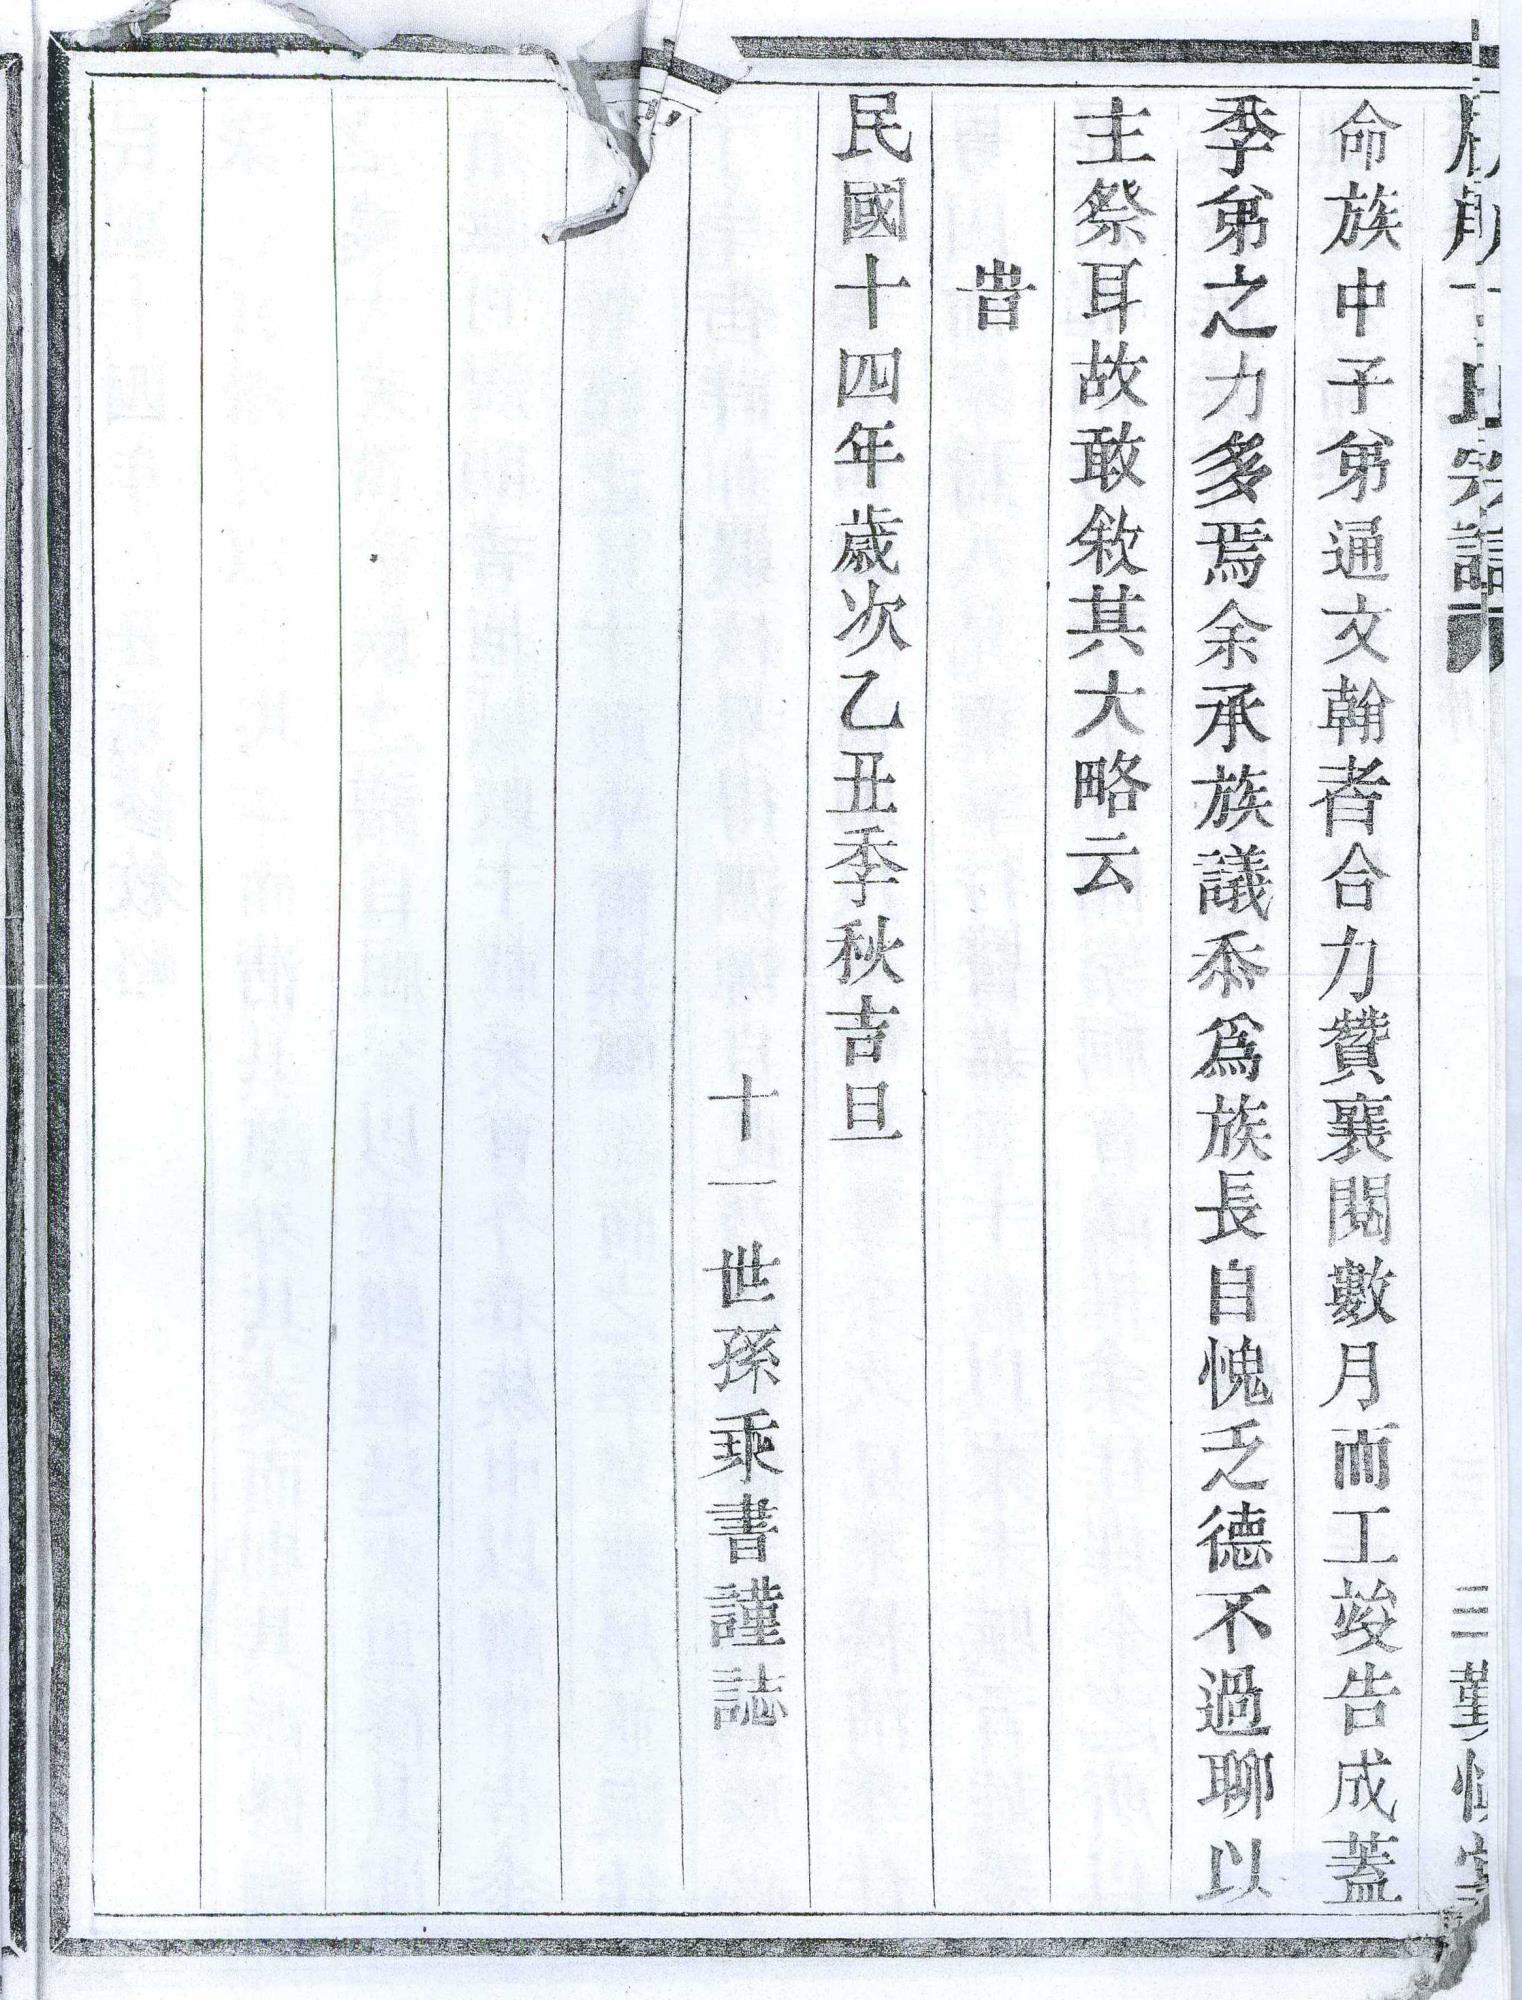 氏宗譜
三
命族中子弟通文翰者合力贊襄閱數月而工竣告成蓋
季弟之力多焉余承族議忝爲族長自愧乏德不過聊以
主祭耳故敢敘其大略云
旹
民國十四年歲次乙丑季秋吉旦
十一世孫乘書謹誌